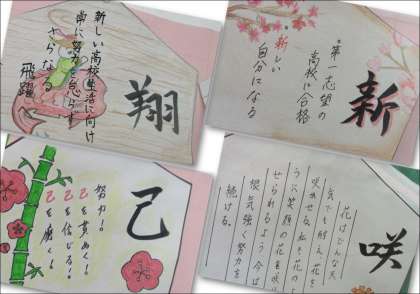 翔
新しい高校生活に向け
常に努力を怠らず
さらなる
飛躍
新
第一志望の
高校に合格
新しい
自分になる
己
努力!
己を
己を信じる!
己を磨く!
咲
花はどんな天
気でも耐え花を
咲かせる。私も花のよ
うに笑顔の花を咲か
せられるよう今は
根気強く努力を
続ける。